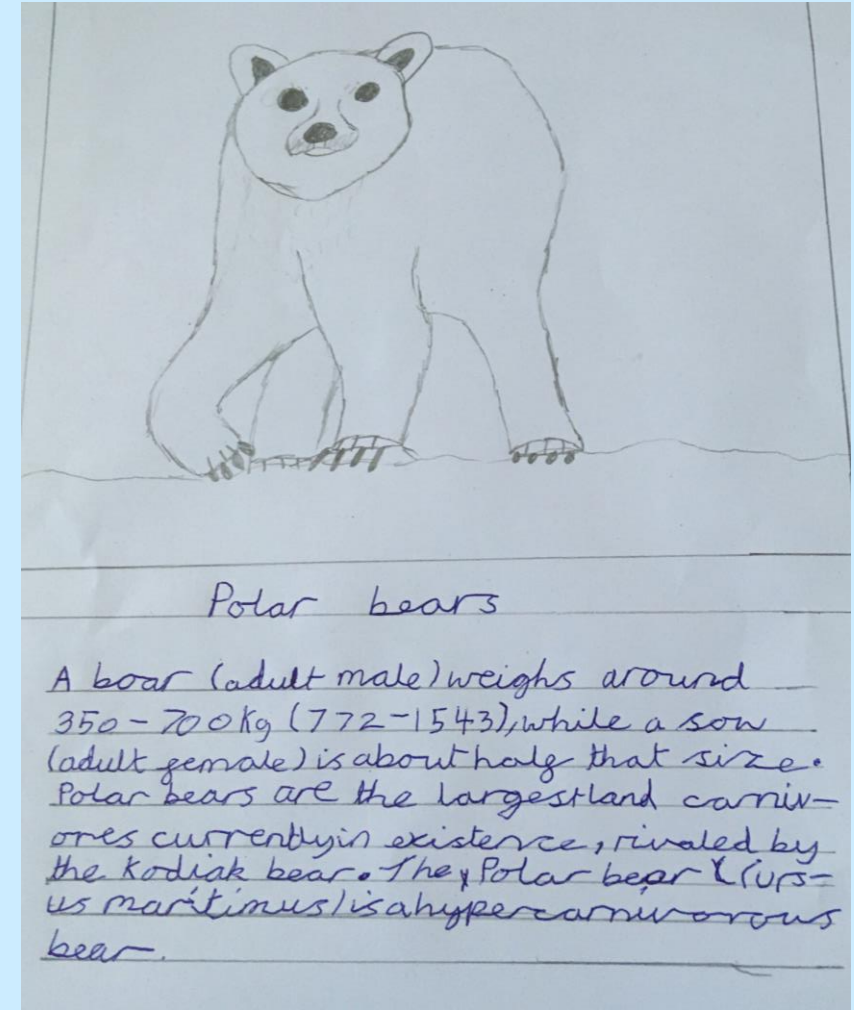 Polar bears
A boar (adult male) weighs around
350-700kg (772-1543), while a sow
(adult female) is about half that size.
Polar bears are the largest land carniv-
ores currently in existence, rivaled by
the Kodiak bear. The Polar bear (urs-
us maritimus) is a hypercarnivorous
bear.